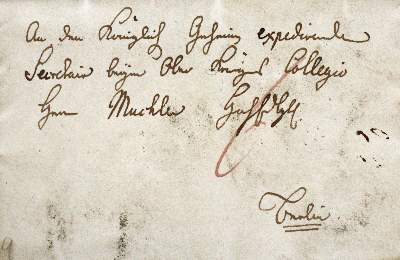 An den Königlich Geheim expedirende
Secretair beym Ober Kriegs Collegio
Herr Muchler
Berlin